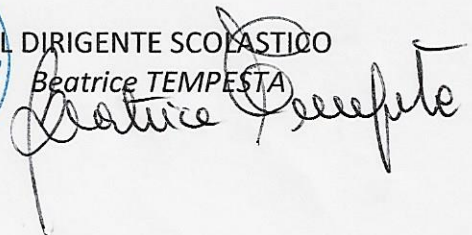 L DIRIGENTE SCOLASTICO
Beatrice TEMPESTA
Beatrice Tempesta